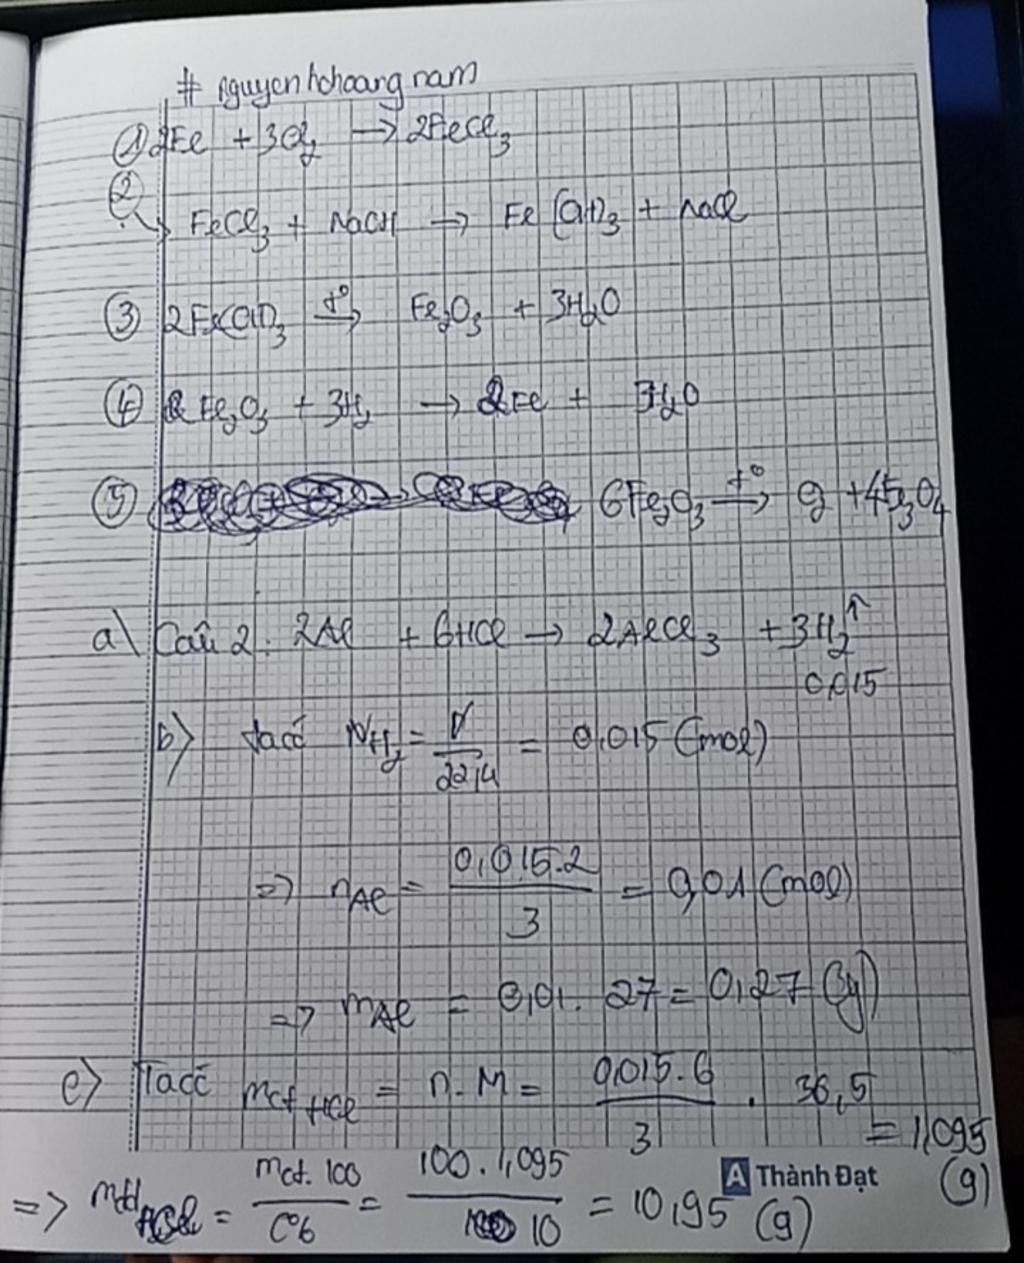 # nguyenhhoangnam
① 2Fe + 3Cl₂ → 2FeCl₃
②
→ FeCl₃ + NaOH → Fe(OH)₃ + NaCl
③ 2Fe(OH)₃ t° → Fe₂O₃ + 3H₂O
④ Fe₂O₃ + 3H₂ → 2Fe + 3H₂O
⑤ 6Fe₂O₃ t° → O₂ + 4Fe₃O₄
a\ Câu 2: 2Al + 6HCl → 2AlCl₃ + 3H₂↑
0,015
b) tacó nH₂ = V/22,4 = 0,015 (mol)
=> nAl = 0,015.2/3 = 0,01 (mol)
=> mAl = 0,01. 27 = 0,27 (g)
c) Tacó mct HCl = n.M = 0,015.6/3 . 36,5 = 1,095 (g)
=> mdd HCl = mct.100/C% = 100.1,095/10 = 10,95 (g)
A Thành Đạt